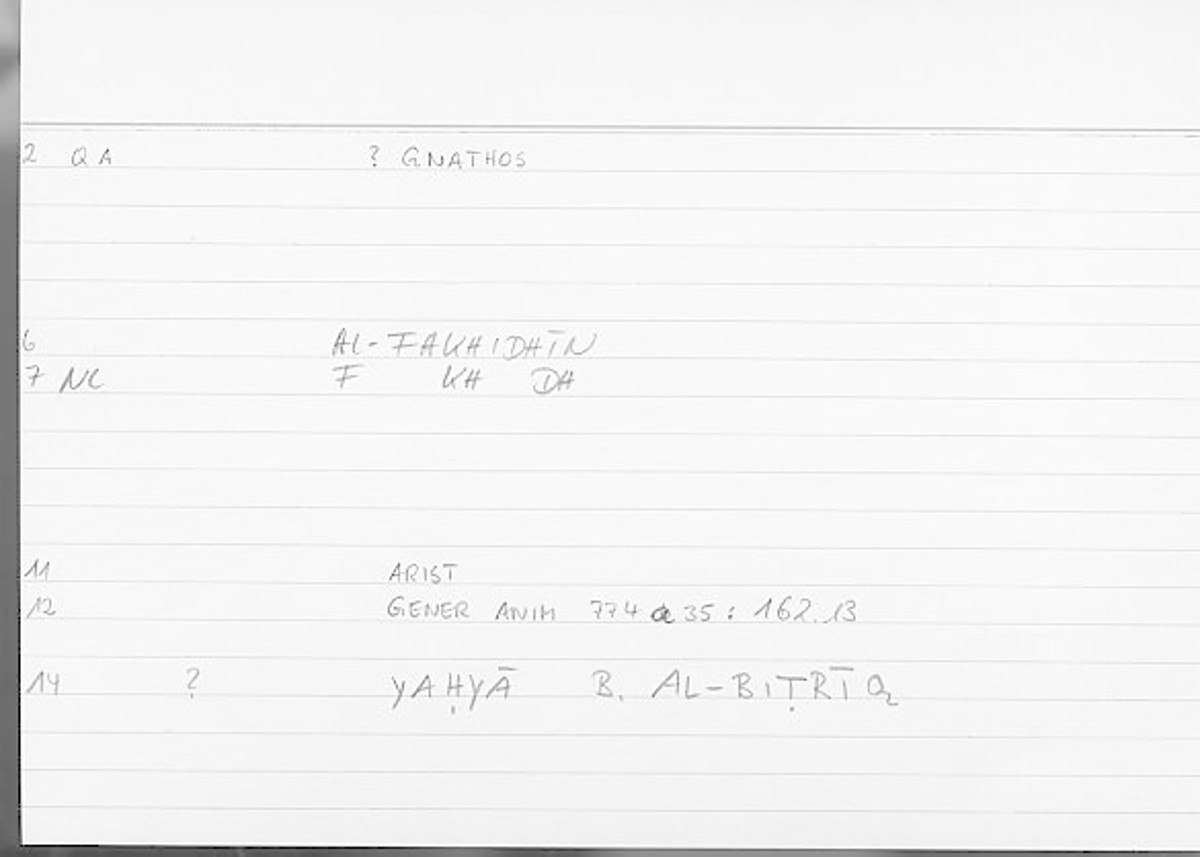 2 QA ? GNATHOS
6 AL-FAKHIDHĪN
7 NC F KH DH
11 ARIST
12 GENER ANIM 774 a 35 : 162.13
14 ? YAḤYĀ B. AL-BIṬRĪQ